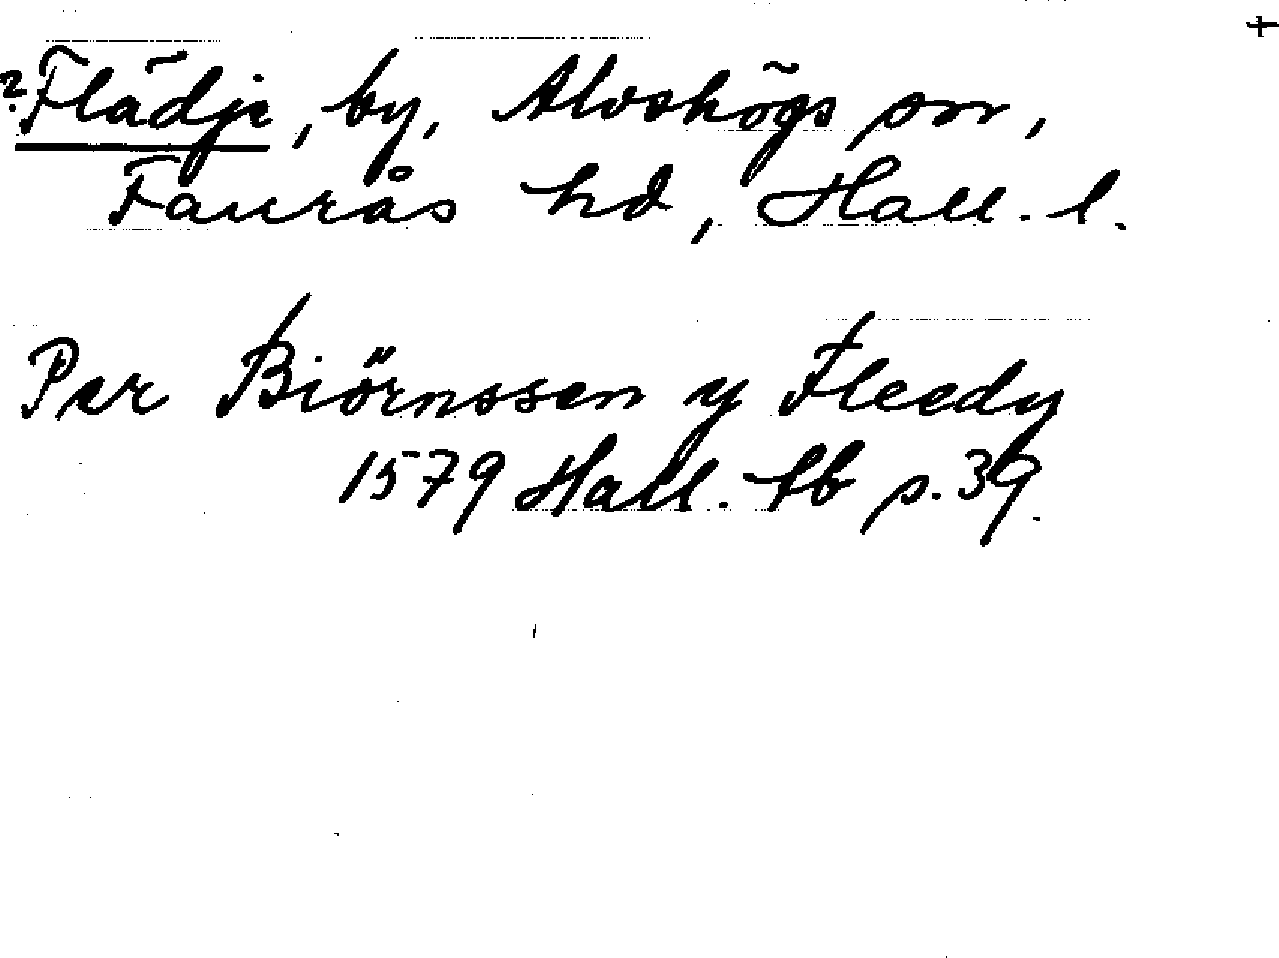 +
? Flädje, by, Alvshögs sn,
Faurås hd, Hall. l.
Per Biörnssen y Fleedy
1579 Hall. tb p. 39.